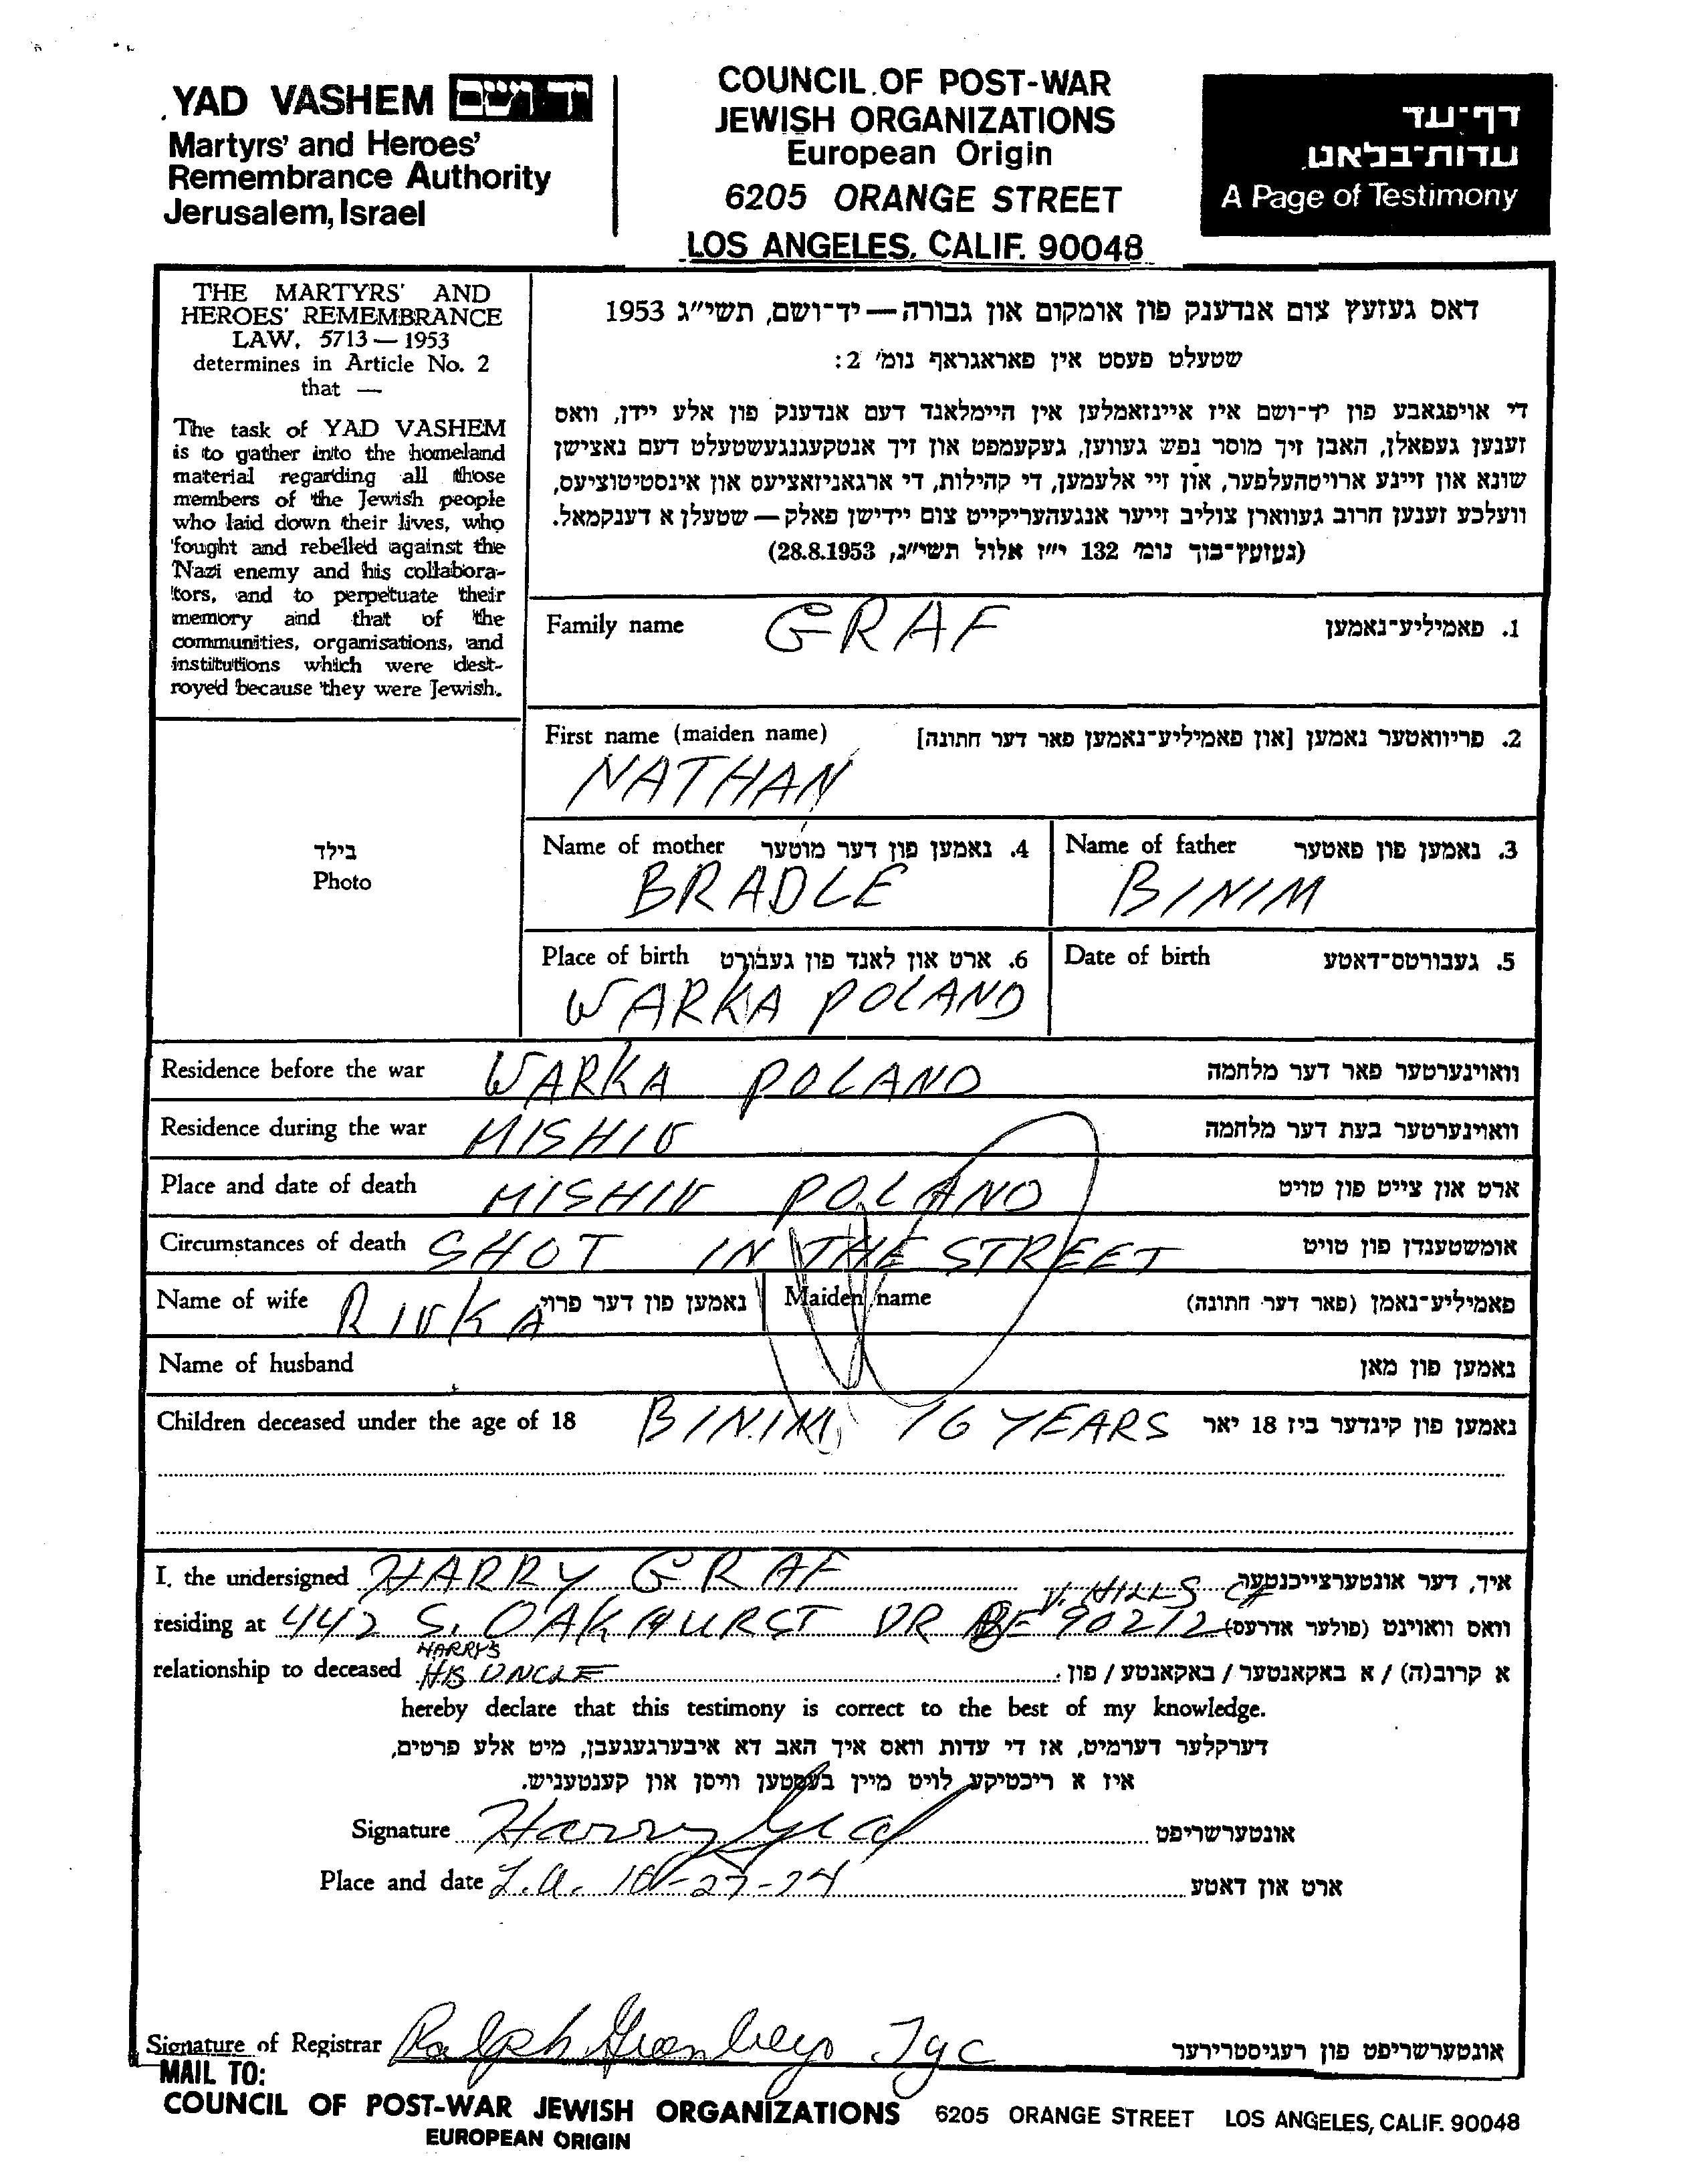 YAD VASHEM יד ושם
Martyrs' and Heroes'
Remembrance Authority
Jerusalem, Israel
COUNCIL OF POST-WAR
JEWISH ORGANIZATIONS
European Origin
6205 ORANGE STREET
LOS ANGELES, CALIF. 90048
דף־עד
עדות־בלאט
A Page of Testimony
THE MARTYRS' AND
HEROES' REMEMBRANCE
LAW, 5713 — 1953
determines in Article No. 2
that —
The task of YAD VASHEM
is to gather into the homeland
material regarding all those
members of the Jewish people
who laid down their lives, who
fought and rebelled against the
Nazi enemy and his collabora-
tors, and to perpetuate their
memory and that of the
communities, organisations, and
institutions which were dest-
royed because they were Jewish.
דאס געזעץ צום אנדענק פון אומקום און גבורה — יד־ושם, תשי״ג 1953
שטעלט פעסט אין פאראגראף נומ׳ 2:
די אויפגאבע פון יד־ושם איז איינזאמלען אין היימלאנד דעם אנדענק פון אלע יידן, וואס
זענען געפאלן, האבן זיך מוסר נפש געווען, געקעמפט און זיך אנטקעגנגעשטעלט דעם נאצישן
שונא און זיינע ארויסהעלפער, און זיי אלעמען, די קהילות, די ארגאניזאציעס און אינסטיטוציעס,
וועלכע זענען חרוב געווארן צוליב זייער אנגעהעריקייט צום יידישן פאלק — שטעלן א דענקמאל.
(געזעץ־בוך נומ׳ 132 י״ז אלול תשי״ג, 28.8.1953)
בילד
Photo
Family name GRAF 1. פאמיליע־נאמען
First name (maiden name) 2. פריוואטער נאמען [און פאמיליע־נאמען פאר דער חתונה]
NATHAN
Name of mother 4. נאמען פון דער מוטער
BRADLE
Name of father 3. נאמען פון פאטער
BINIM
Place of birth 6. ארט און לאנד פון געבורט
WARKA POLAND
Date of birth 5. געבורטס־דאטע
Residence before the war WARKA POLAND וואוינערטער פאר דער מלחמה
Residence during the war MISHIV וואוינערטער בעת דער מלחמה
Place and date of death MISHIV POLAND ארט און צייט פון טויט
Circumstances of death SHOT IN THE STREET אומשטענדן פון טויט
Name of wife RIVKA נאמען פון דער פרוי Maiden name פאמיליע־נאמן (פאר דער חתונה)
Name of husband נאמען פון מאן
Children deceased under the age of 18 BINIM, 16 YEARS נאמען פון קינדער ביז 18 יאר
I, the undersigned HARRY GRAF איך, דער אונטערצייכנטער
V. HILLS CA
residing at 442 S. OAKHURST DR BE 90212 וואס וואוינט (פולער אדרעס)
HARRYS
relationship to deceased HIS UNCLE א קרוב(ה) / א באקאנטער / באקאנטע / פון:
hereby declare that this testimony is correct to the best of my knowledge.
דערקלער דערמיט, אז די עדות וואס איך האב דא איבערגעגעבן, מיט אלע פרטים,
איז א ריכטיקע לויט מיין בעסטען וויסן און קענטעניש.
Signature Harry Graf אונטערשריפט
Place and date L.A. 10-27-94 ארט און דאטע
Signature of Registrar Ralph אונטערשריפט פון רעגיסטרירער
MAIL TO:
COUNCIL OF POST-WAR JEWISH ORGANIZATIONS 6205 ORANGE STREET LOS ANGELES, CALIF. 90048
EUROPEAN ORIGIN